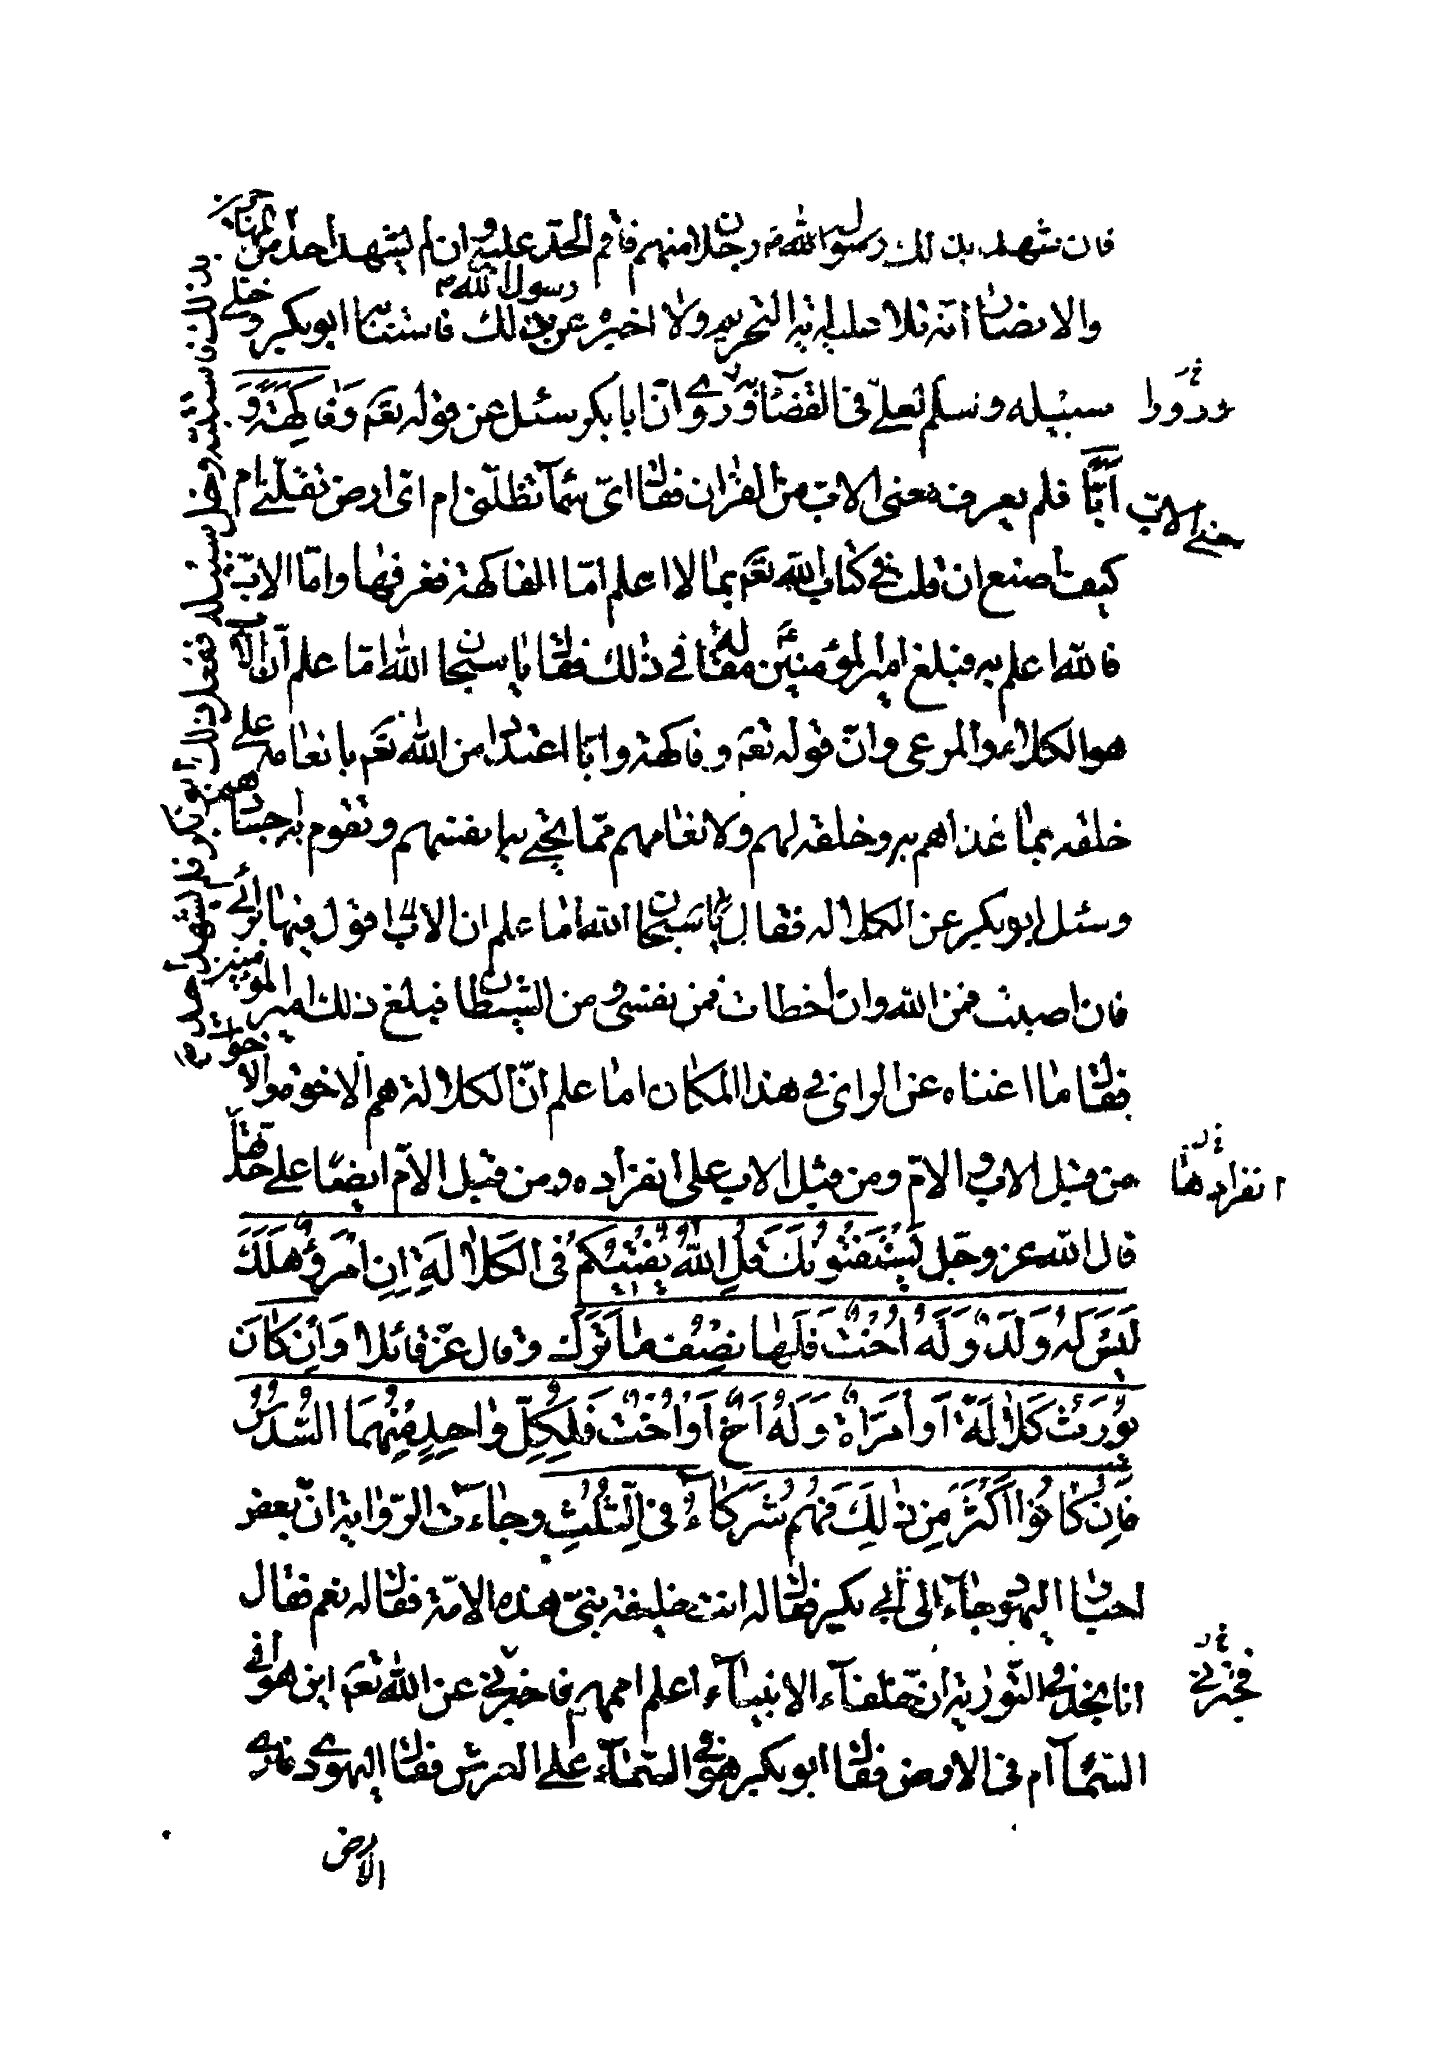 فان شهد بذلك رسول الله ص رجلان منهم فاقم الحدّ عليه وان لم يشهد احد من المهاجرين
والانصار انه تلا عليه اية التحريم ولا اخبره عن رسول الله ص بذلك فاستتابه ابو بكر و خلى
سبيله وسلم لعليّ في القضاء به وروي انّ ابا بكر سئل عن قوله تعم وَفَاكِهَةً وَ
اَبًّا فلم يعرف معنى الابّ من القرآن فقال ايّ سماء تظلّني ام ايّ ارض تقلّني ام
كيف اصنع ان قلت في كتاب الله تعم بما لا اعلم امّا الفاكهة فنعرفها وامّا الابّ
فالله اعلم به فبلغ امير المؤمنين مقاله في ذلك فقال يا سبحان الله اما علم ان الابّ
هو الكلاء والمرعى وانّ قوله تعم وفاكهة وابّا اعتداد من الله تعم بانعامه على
خلقه بما غذاهم به وخلقه لهم ولانعامهم ممّا يحيى به انفسهم وتقوم به اجسادهم
وسئل ابو بكر عن الكلالة فقال اقول فيها برأيي
فان اصبت فمن الله وان اخطات فمن نفسي ومن الشيطان فبلغ ذلك امير المؤمنين
فقال ما اغناه عن الراي في هذا المكان اما علم انّ الكلالة هم الاخوة والاخوات
من قبل الاب والامّ ومن قبل الاب على انفراده ومن قبل الامّ ايضا على حالها
قال الله عز وجل يَسْتَفْتُونَكَ قُلِ اللهُ يُفْتِيكُمْ فِي الْكَلَالَةِ اِنِ امْرُؤٌ هَلَكَ
لَيْسَ لَهُ وَلَدٌ وَلَهُ اُخْتٌ فَلَهَا نِصْفُ مَا تَرَكَ وقال عزّ قائلا وَاِنْ كَانَ
رَجُلٌ يُورَثُ كَلَالَةً اَوِ امْرَاَةٌ وَلَهُ اَخٌ اَوْ اُخْتٌ فَلِكُلِّ وَاحِدٍ مِنْهُمَا السُّدُسُ
فَاِنْ كَانُوا اَكْثَرَ مِنْ ذٰلِكَ فَهُمْ شُرَكَاءُ فِي الثُّلُثِ وجاءت الرّواية انّ بعض
احبار اليهود جاء الى ابي بكر فقال له انت خليفة نبيّ هذه الامّة فقال له نعم فقال
انا نجد في التورٰية انّ خلفاء الانبياء اعلم اممهم فاخبرني عن الله تعم اين هو افي
السماء ام في الارض فقال ابو بكر هو في السماء على العرش فقال اليهودي فارى
الارض
ورووا
معنى الابّ
انفرادها
فخبّرني
بذلك فاستتبه وخل سبيله ففعل ذلك ابو بكر فلم يشهد احد